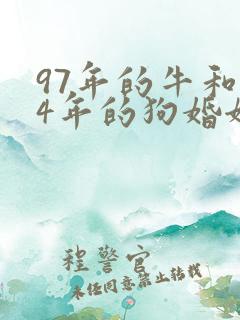 97年的牛和
4年的狗婚
程警官
未任同意禁止转载